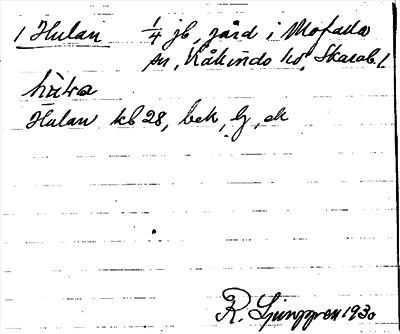 1 Hulan 1/4 jb, gård i Mofalla
sn, Kåkinds hd, Skarab. l
Hulan kb 28, bek, lj, ek
R. Ljunggren 1930